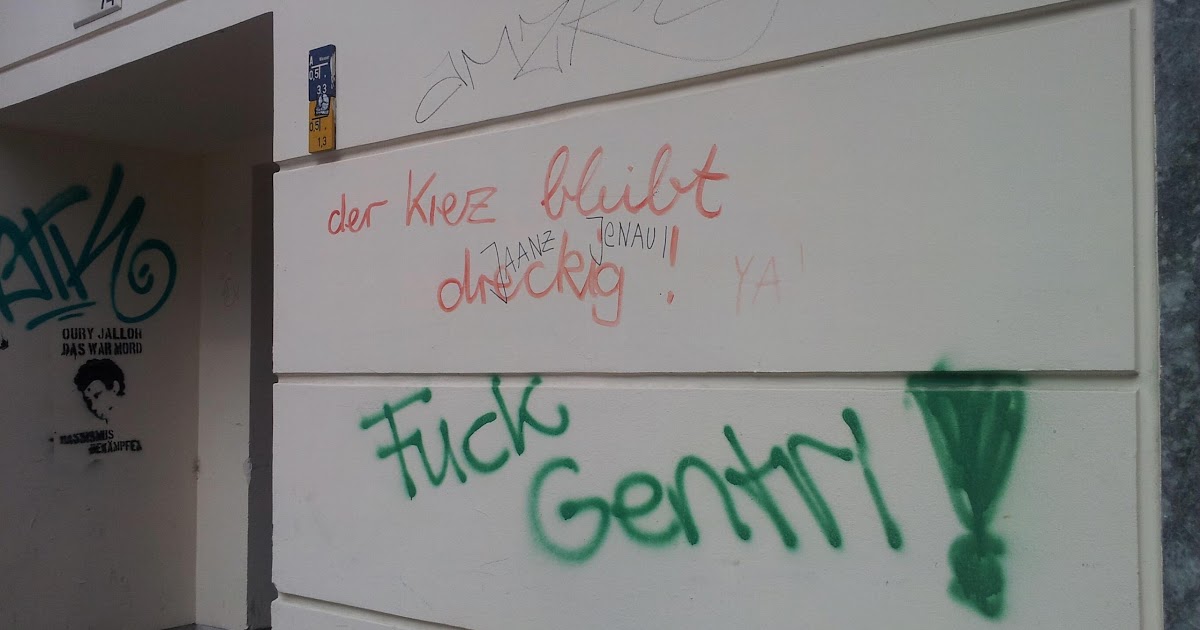 74
A
0,5
3,3
0,5
1,3
der Kiez bleibt
dreckig !
JAANZ JENAU!
YA'
Fuck
Gentri!
OURY JALLOH
DAS WAR MORD
RASSISMUS
BEKÄMPFEN